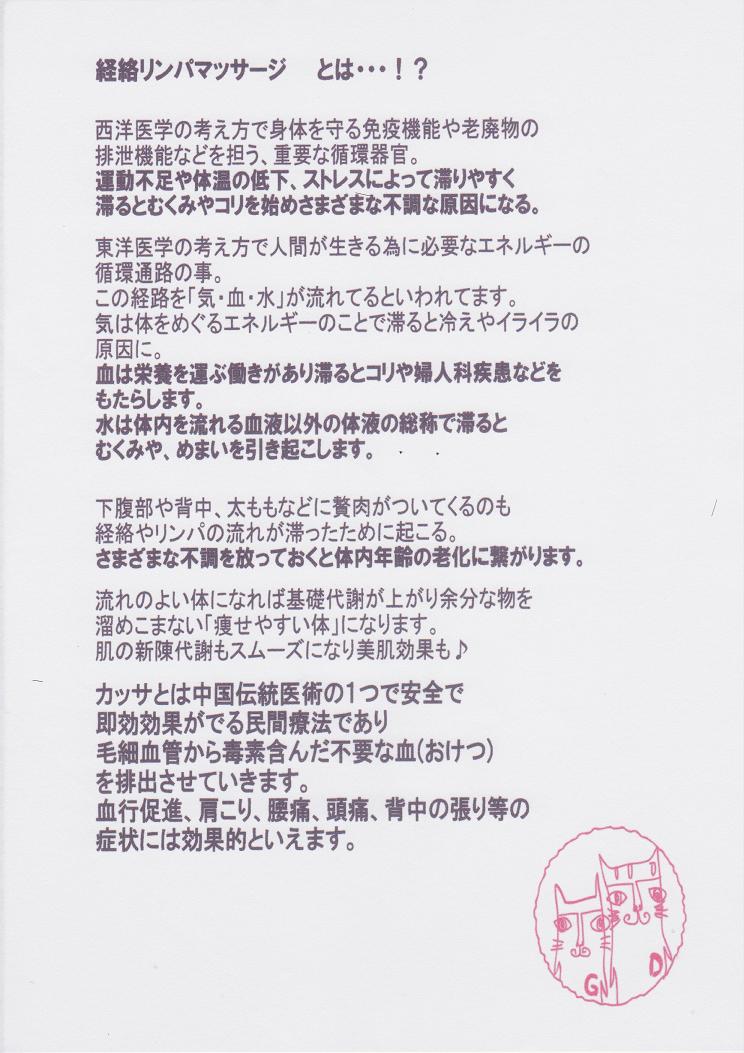 経絡リンパマッサージ　とは・・・！？
西洋医学の考え方で身体を守る免疫機能や老廃物の
排泄機能などを担う、重要な循環器官。
運動不足や体温の低下、ストレスによって滞りやすく
滞るとむくみやコリを始めさまざまな不調な原因になる。
東洋医学の考え方で人間が生きる為に必要なエネルギーの
循環通路の事。
この経路を「気・血・水」が流れてるといわれてます。
気は体をめぐるエネルギーのことで滞ると冷えやイライラの
原因に。
血は栄養を運ぶ働きがあり滞るとコリや婦人科疾患などを
もたらします。
水は体内を流れる血液以外の体液の総称で滞ると
むくみや、めまいを引き起こします。
下腹部や背中、太ももなどに贅肉がついてくるのも
経絡やリンパの流れが滞ったために起こる。
さまざまな不調を放っておくと体内年齢の老化に繋がります。
流れのよい体になれば基礎代謝が上がり余分な物を
溜めこまない「痩せやすい体」になります。
肌の新陳代謝もスムーズになり美肌効果も♪
カッサとは中国伝統医術の1つで安全で
即効効果がでる民間療法であり
毛細血管から毒素含んだ不要な血(おけつ)
を排出させていきます。
血行促進、肩こり、腰痛、頭痛、背中の張り等の
症状には効果的といえます。
G D